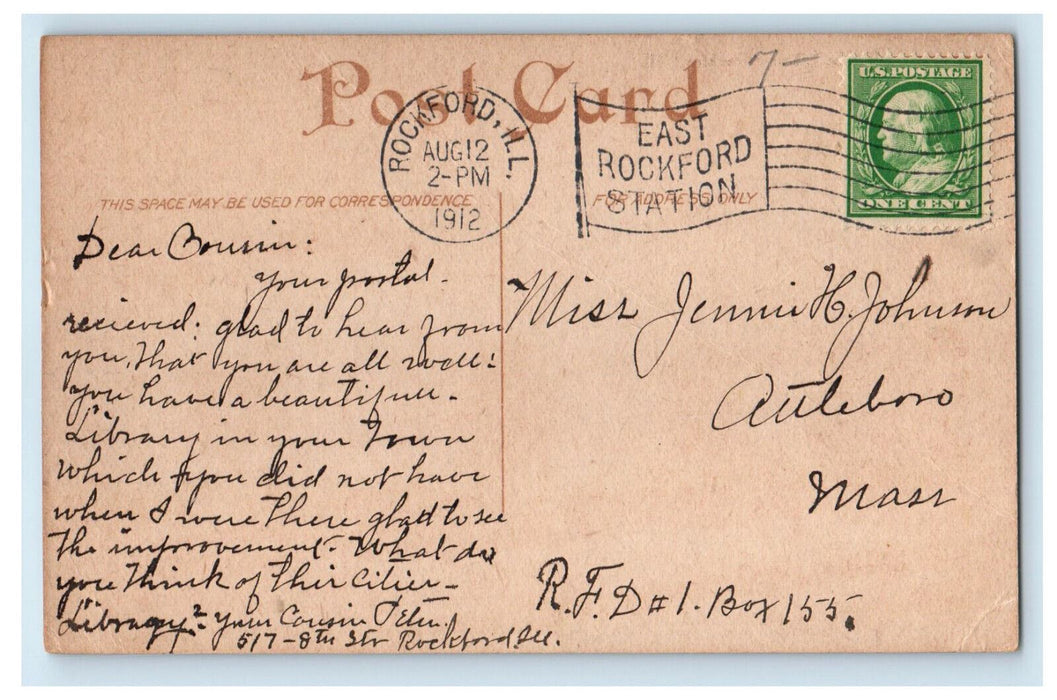 Post Card
7-
U.S. POSTAGE
ONE CENT
ROCKFORD, ILL.
AUG 12
2-PM
1912
EAST
ROCKFORD
STATION
THIS SPACE MAY BE USED FOR CORRESPONDENCE
FOR ADDRESS ONLY
Dear Cousin:
Your postal.
recieved. glad to hear from
you, that you are all well:
you have a beautifull.
Library in your Town
which you did not have
when I were there glad to see
the improvement. What do
you think of this cities-
Library? Your Cousin Peter.
517-8th Str Rockford, Ill.
Miss Jennie H. Johnson
Attleboro
Mass
R.F.D #1. Box 155.